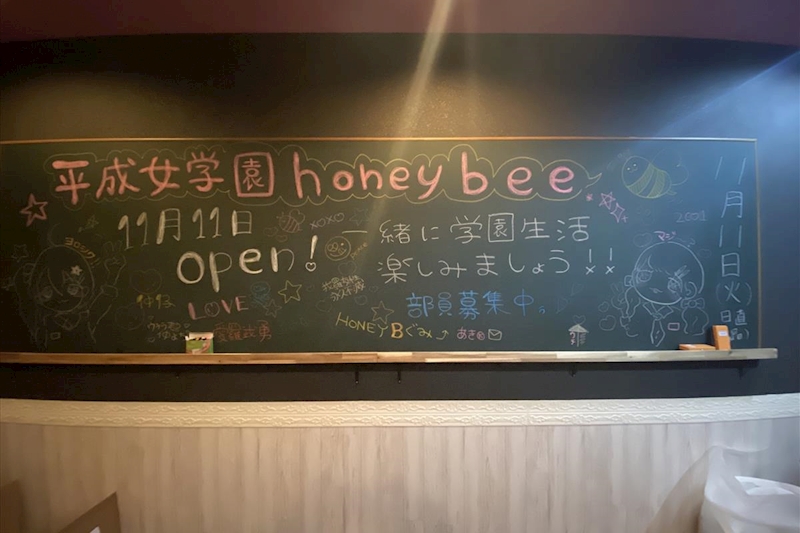 平成女学園 honey bee
11月11日
open!
xoxo
一緒に学園生活
楽しみましょう!!
部員募集中。
ヨロシク
LOVE
HONEY Bぐみ
あき
11月11日(火)
日直